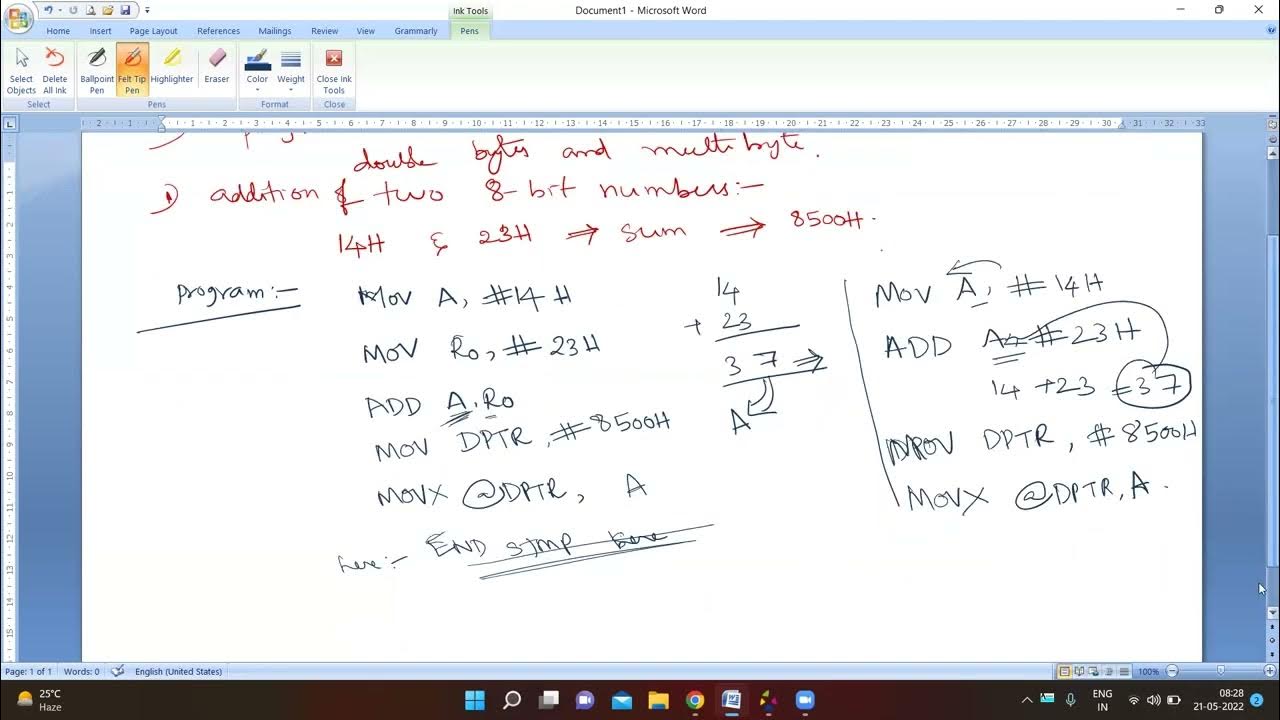 Ink Tools
Document1 - Microsoft Word
Home Insert Page Layout References Mailings Review View Grammarly Pens
Select Objects Delete All Ink Ballpoint Pen Felt Tip Pen Highlighter Eraser Color Weight Close Ink Tools
Select Pens Format Close
double bytes and multibyte.
1) addition of two 8-bit numbers:-
14H & 23H ⇒ sum ⇒ 8500H.
Program:-
MOV A, #14 H
MOV R0, # 23H
ADD A, R0
MOV DPTR, #8500H
MOVX @DPTR, A
here:- END sjmp here
14
+ 23
37 ⇒
A
MOV A, #14H
ADD A, # 23H
14 +23 = 37
MOV DPTR, #8500H
MOVX @DPTR, A.
Page: 1 of 1 Words: 0 English (United States) 100%
25°C
Haze
ENG
IN
08:28
21-05-2022
2